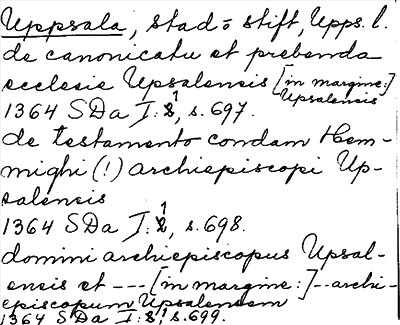 Uppsala, stad o stift, Upps. l.
de canonicatu et prebenda
ecclesie Upsalensis [in margine:]
Upsalensis
1364 SDa I:1, s. 697.
de testamento condam Hem-
mighi (!) archiepiscopi Up-
salensis
1364 SDa I:1, s. 698.
domini archiepiscopus Upsal-
ensis et --- [in margine:] -- archi-
episcopum Upsalensem
1364 SDa I:1, s. 699.